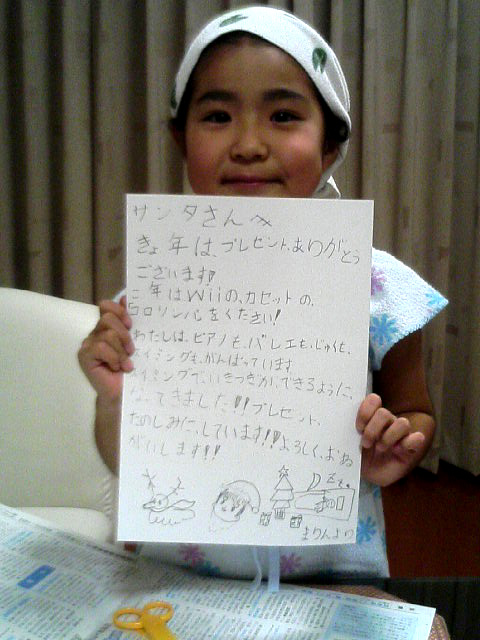 サンタさんへ
きょ年は、プレゼント、ありがとう
ございます!!
こ年はWiiの、カセットの、
を、ください!
わたしは、ピアノも、バレエも、じゅくも、
イミングも、がんばっています
イミングで、いきつぎが、できるように、
なってきました!!プレゼント、
たのしみに、しています!!よろしく、おね
がいします!!
まりんより